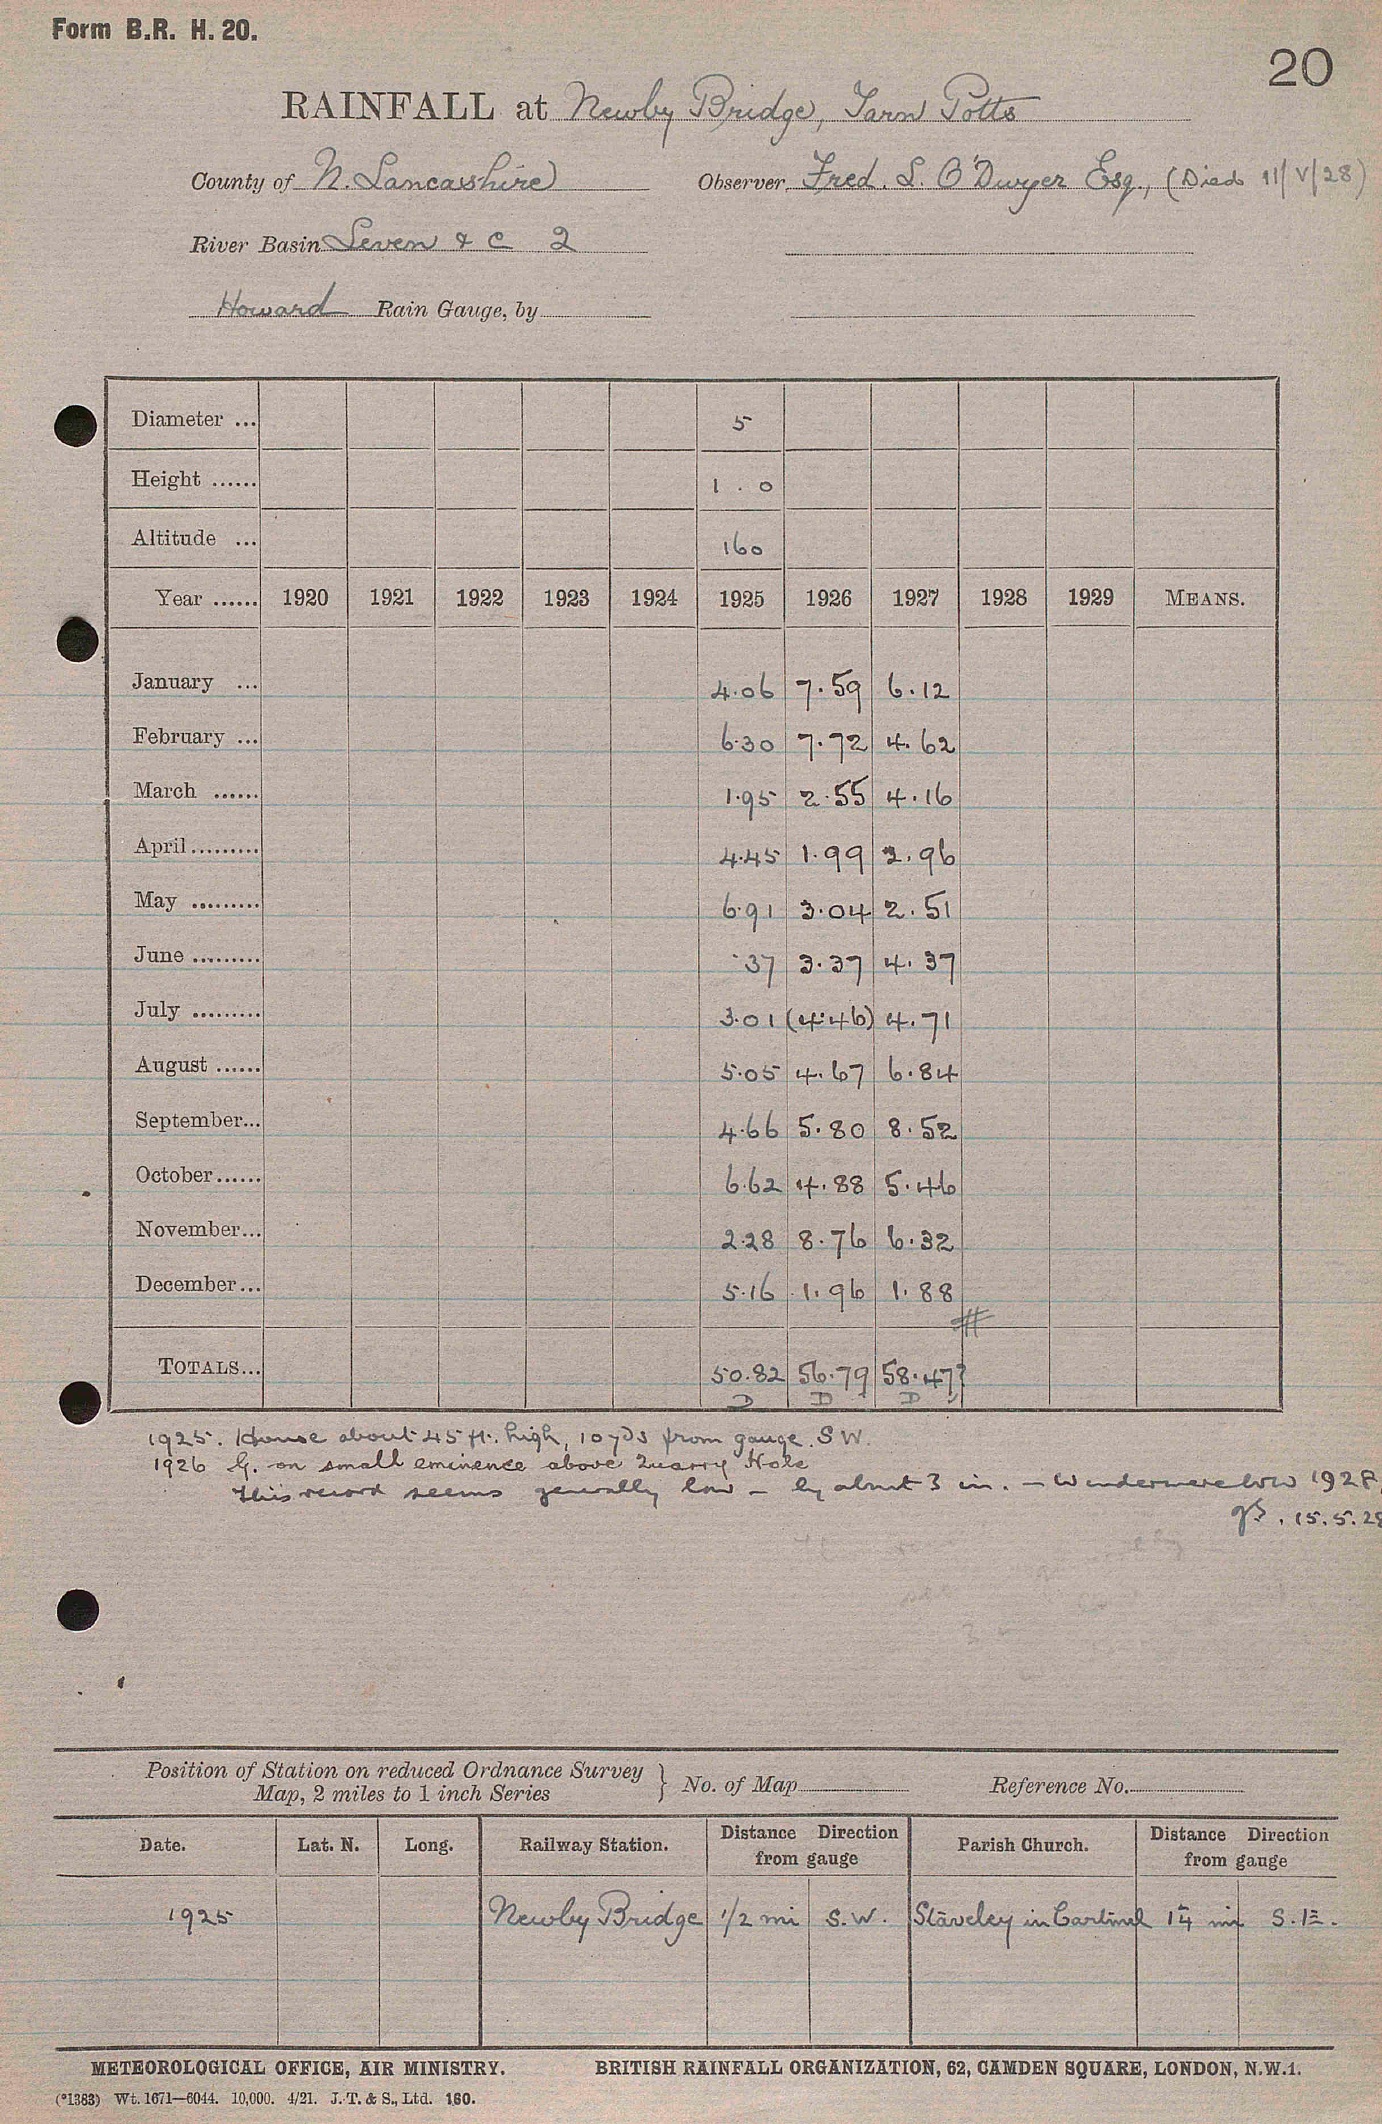 Form B.R. H. 20.
20
RAINFALL at Newby Bridge, Tarn Potts
County of N. Lancashire Observer Fred. S. O'Dwyer Esq., (Died 11/V/28)
River Basin Leven & c 2
Howard Rain Gauge, by
Diameter ... 5
Height ...... 1 . 0
Altitude ... 160
Year ...... 1920 1921 1922 1923 1924 1925 1926 1927 1928 1929 MEANS.
January ... 4.06 7.59 6.12
February ... 6.30 7.72 4.62
March ...... 1.95 2.55 4.16
April ......... 4.45 1.99 2.96
May ......... 6.91 3.04 2.51
June ......... .37 3.37 4.37
July ......... 3.01 (4.46) 4.71
August ...... 5.05 4.67 6.84
September... 4.66 5.80 8.52
October ...... 6.62 4.88 5.46
November... 2.28 8.76 6.32
December... 5.16 1.96 1.88
TOTALS... 50.82 56.79 58.47?
D D D
1925. House about 45 ft. high, 10 yds from gauge. SW.
1926 G. on small eminence above Quarry Hole
This record seems generally low – by about 3 in. – Windermere 1928,
15.5.28
Position of Station on reduced Ordnance Survey
Map, 2 miles to 1 inch Series } No. of Map Reference No.
Date. Lat. N. Long. Railway Station. Distance Direction from gauge Parish Church. Distance Direction from gauge
1925 Newby Bridge 1/2 mi S.W. Staveley in Cartmel 1¼ mi S.E.
METEOROLOGICAL OFFICE, AIR MINISTRY. BRITISH RAINFALL ORGANIZATION, 62, CAMDEN SQUARE, LONDON, N.W.1.
(*1383) Wt. 1671—6044. 10,000. 4/21. J.T. & S., Ltd. 160.